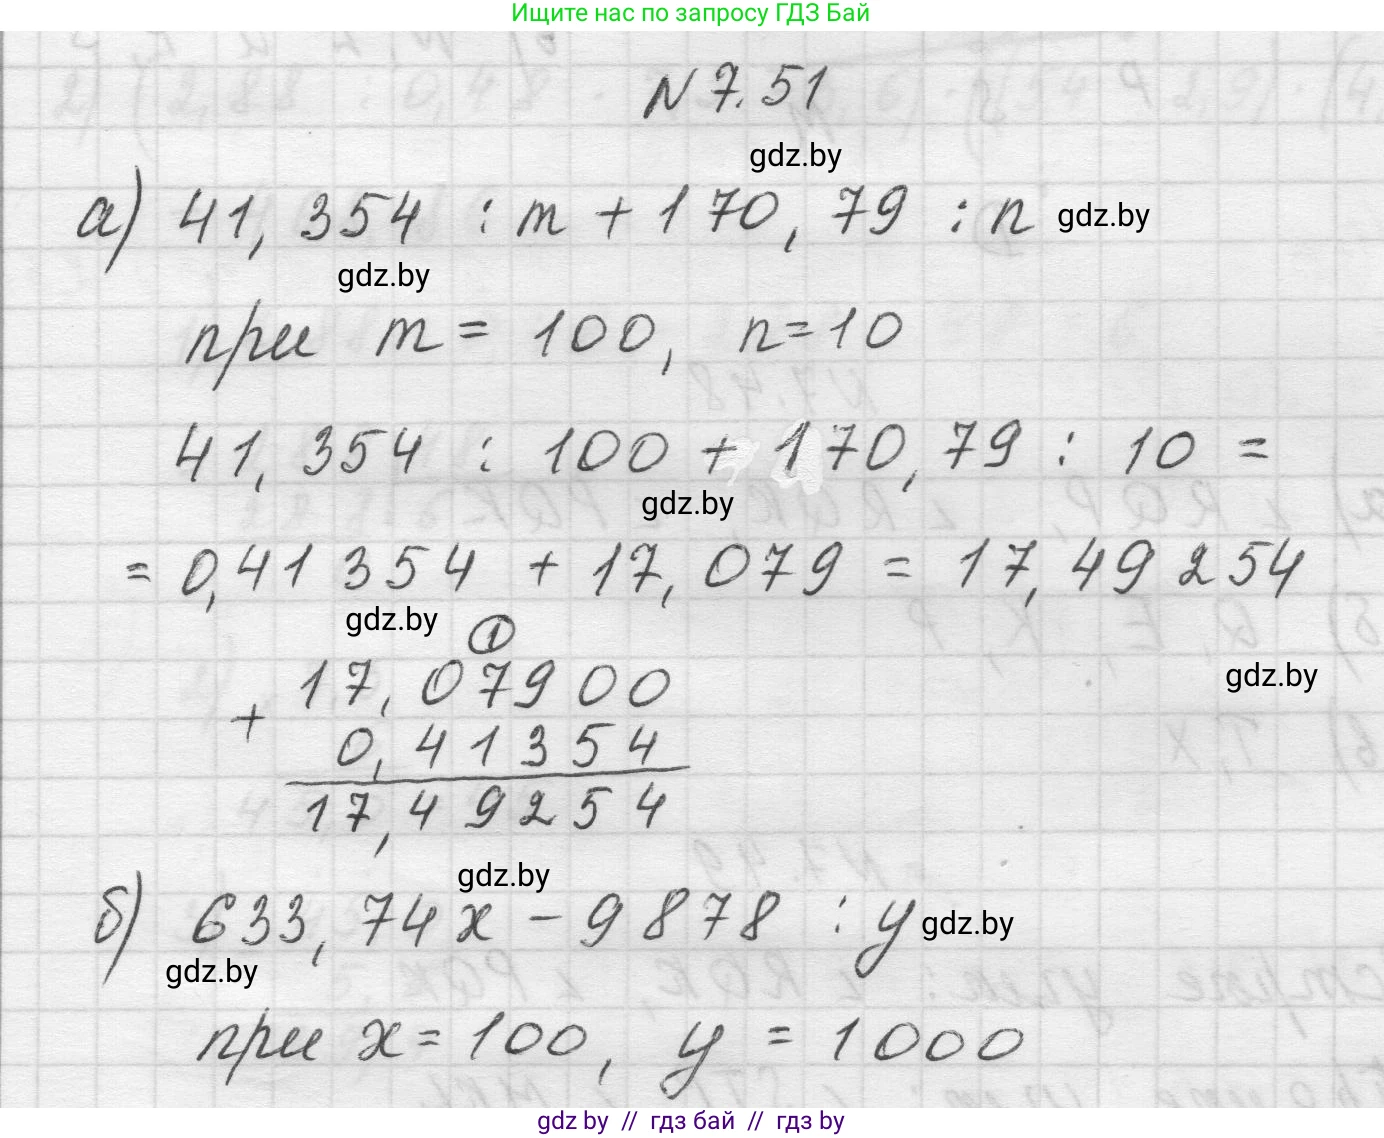 Ищите нас по запросу ГДЗ Бай
N 7.51
gdz.by
а) 41,354 : m + 170,79 : n gdz.by
gdz.by
при m = 100, n=10
41,354 : 100 + 170,79 : 10 =
gdz.by
= 0,41354 + 17,079 = 17,49254
gdz.by
1
17,07900
gdz.by
+
0,41354
17,49254
gdz.by
б) 633,74x - 9878 : y gdz.by
gdz.by
при x = 100, y = 1000
gdz.by // гдз бай // gdz.by